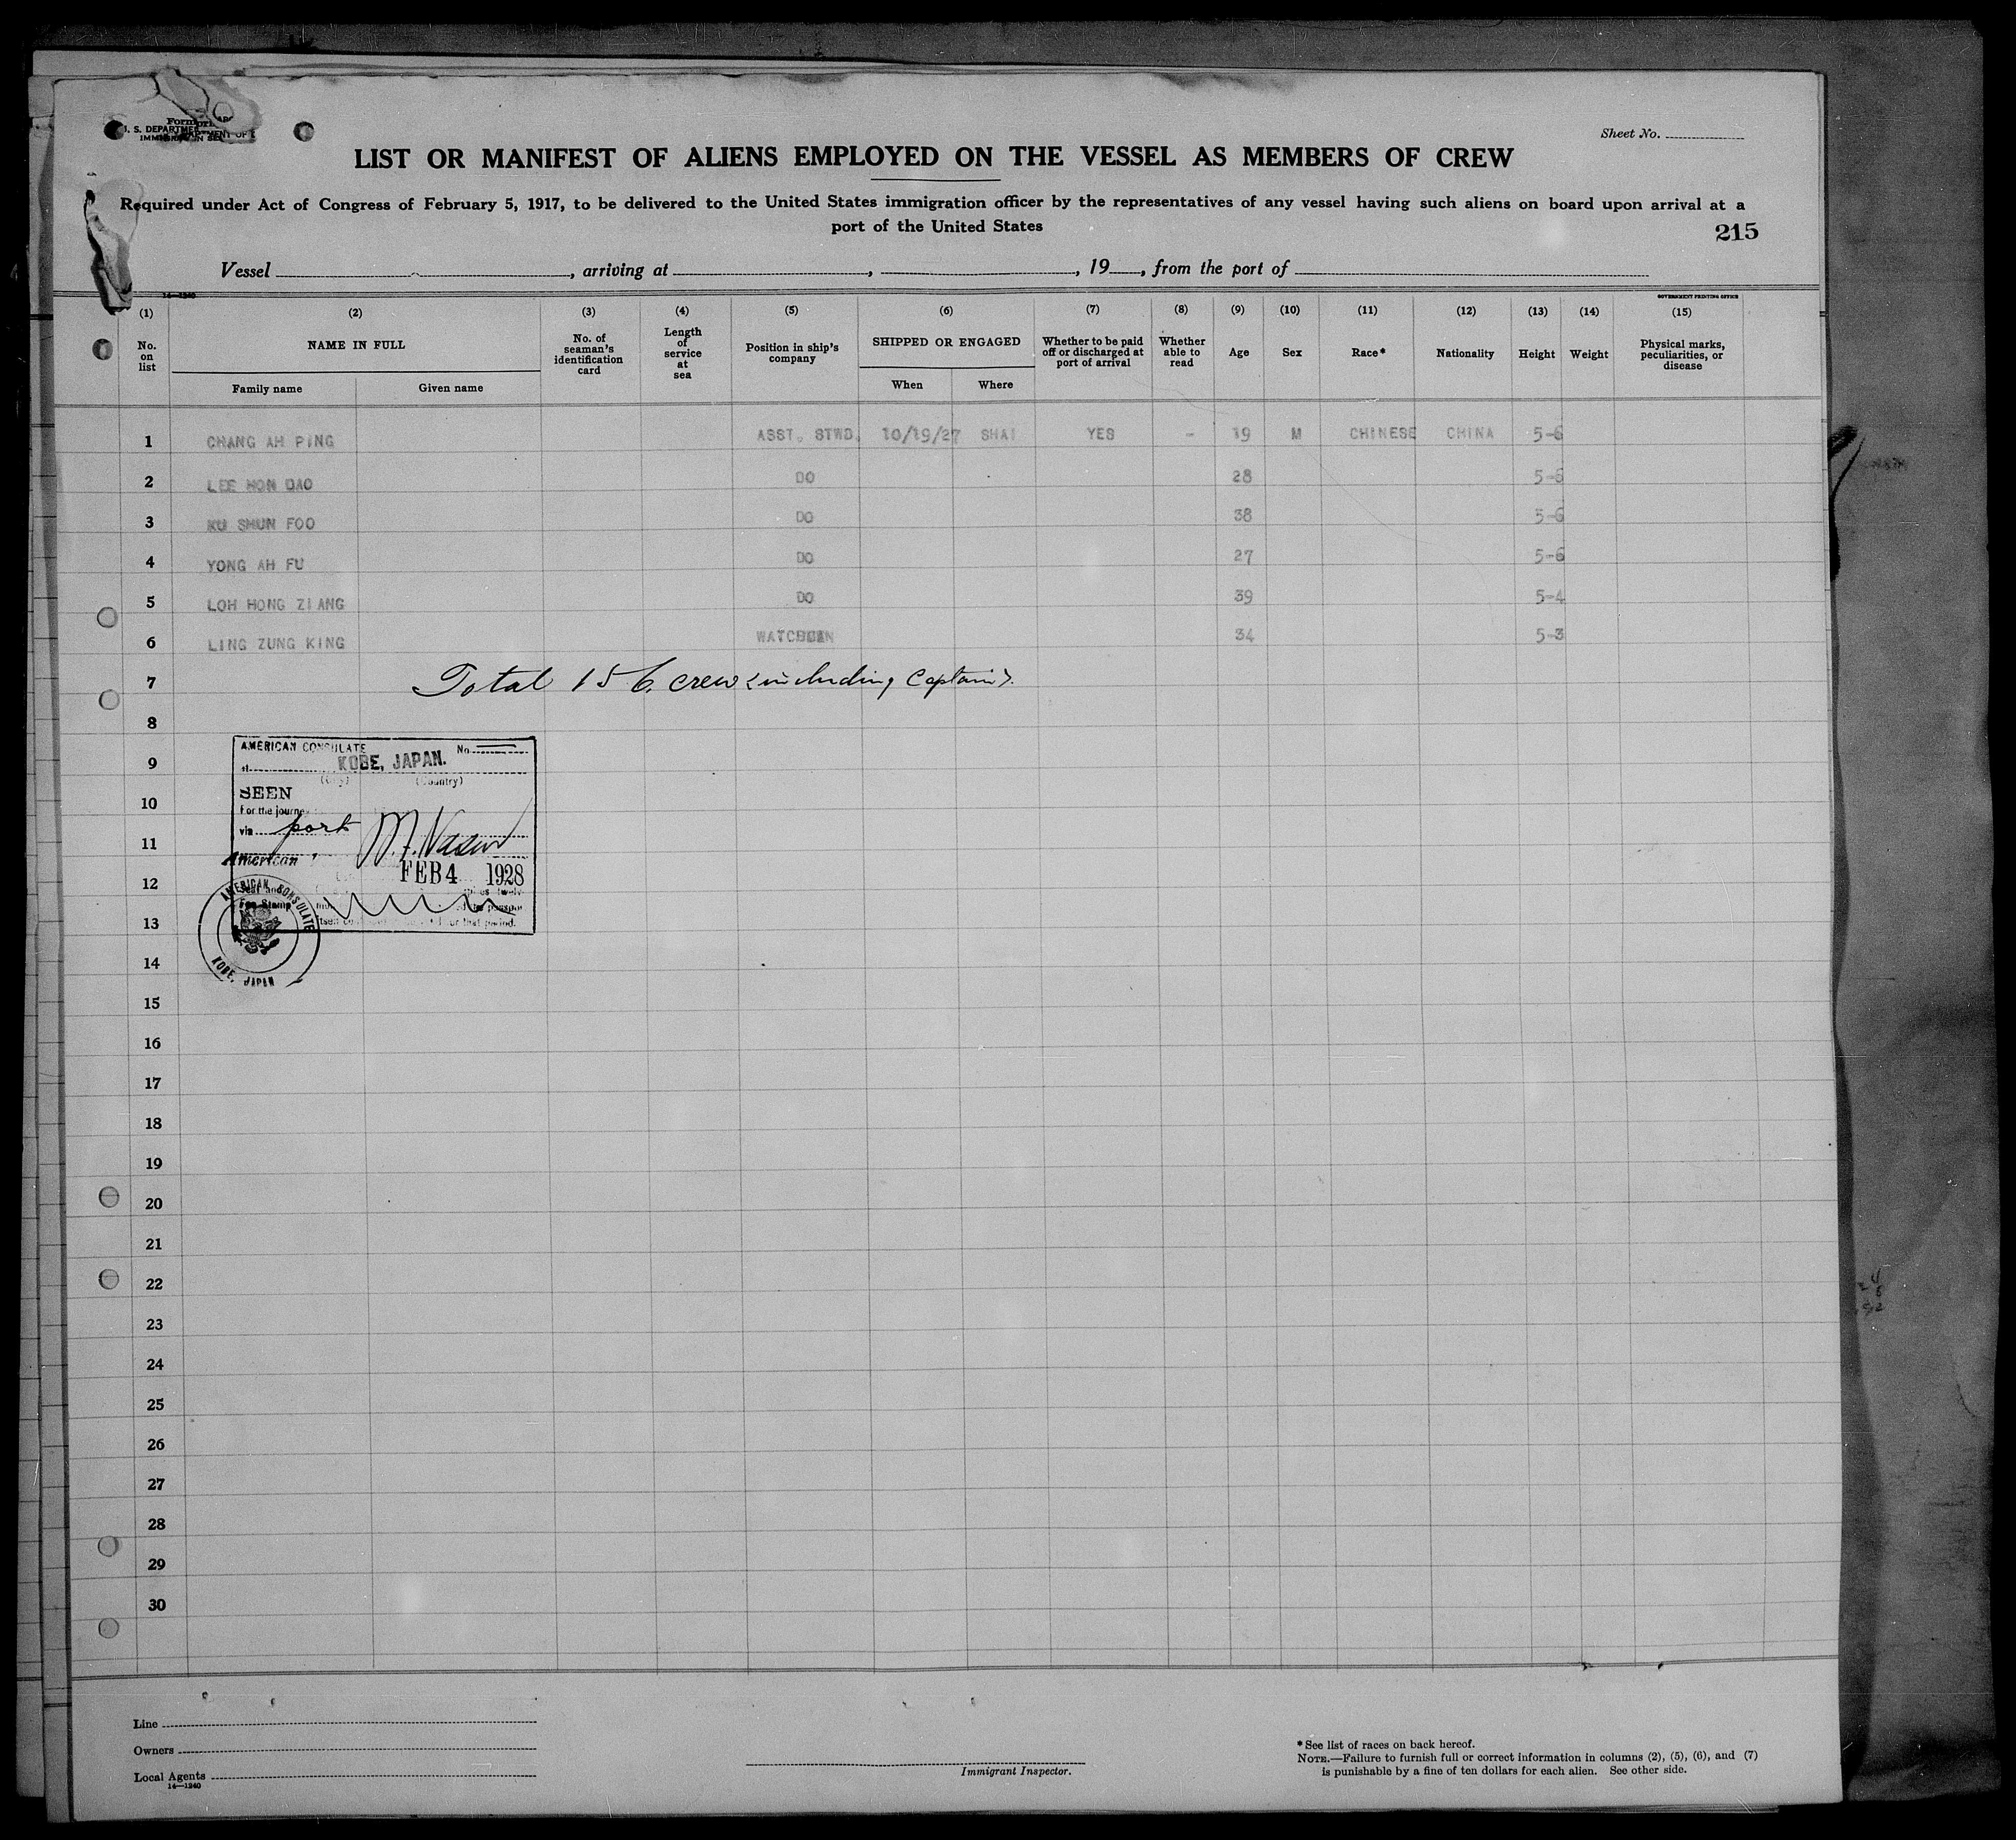 Sheet No.
LIST OR MANIFEST OF ALIENS EMPLOYED ON THE VESSEL AS MEMBERS OF CREW
Required under Act of Congress of February 5, 1917, to be delivered to the United States immigration officer by the representatives of any vessel having such aliens on board upon arrival at a
port of the United States
215
Vessel , arriving at , , 19 , from the port of
14—1240
GOVERNMENT PRINTING OFFICE
(1) (2) (3) (4) (5) (6) (7) (8) (9) (10) (11) (12) (13) (14) (15)
No. on list
NAME IN FULL
Family name Given name
No. of seaman's identification card
Length of service at sea
Position in ship's company
SHIPPED OR ENGAGED
When Where
Whether to be paid off or discharged at port of arrival
Whether able to read
Age
Sex
Race*
Nationality
Height
Weight
Physical marks, peculiarities, or disease
1 CHANG AH PING ASST. STWD. 10/19/27 SHAI YES - 19 M CHINESE CHINA 5-6
2 LEE HON DAO DO 28 5-6
3 KU SHUN FOO DO 38 5-6
4 YONG AH FU DO 27 5-6
5 LOH HONG ZIANG DO 39 5-4
6 LING ZUNG KING 34 5-3
7 Total 156 crew (including Captain).
8
9
10
11
12
13
14
15
16
17
18
19
20
21
22
23
24
25
26
27
28
29
30
AMERICAN CONSULATE No.
at KOBE, JAPAN.
(City) (Country)
SEEN
For the journey
via port
American
FEB 4 1928
Fee Stamp
for that period.
AMERICAN CONSULATE
KOBE, JAPAN
Line
Owners
Local Agents
14—1240
Immigrant Inspector.
* See list of races on back hereof.
NOTE.—Failure to furnish full or correct information in columns (2), (5), (6), and (7)
is punishable by a fine of ten dollars for each alien. See other side.